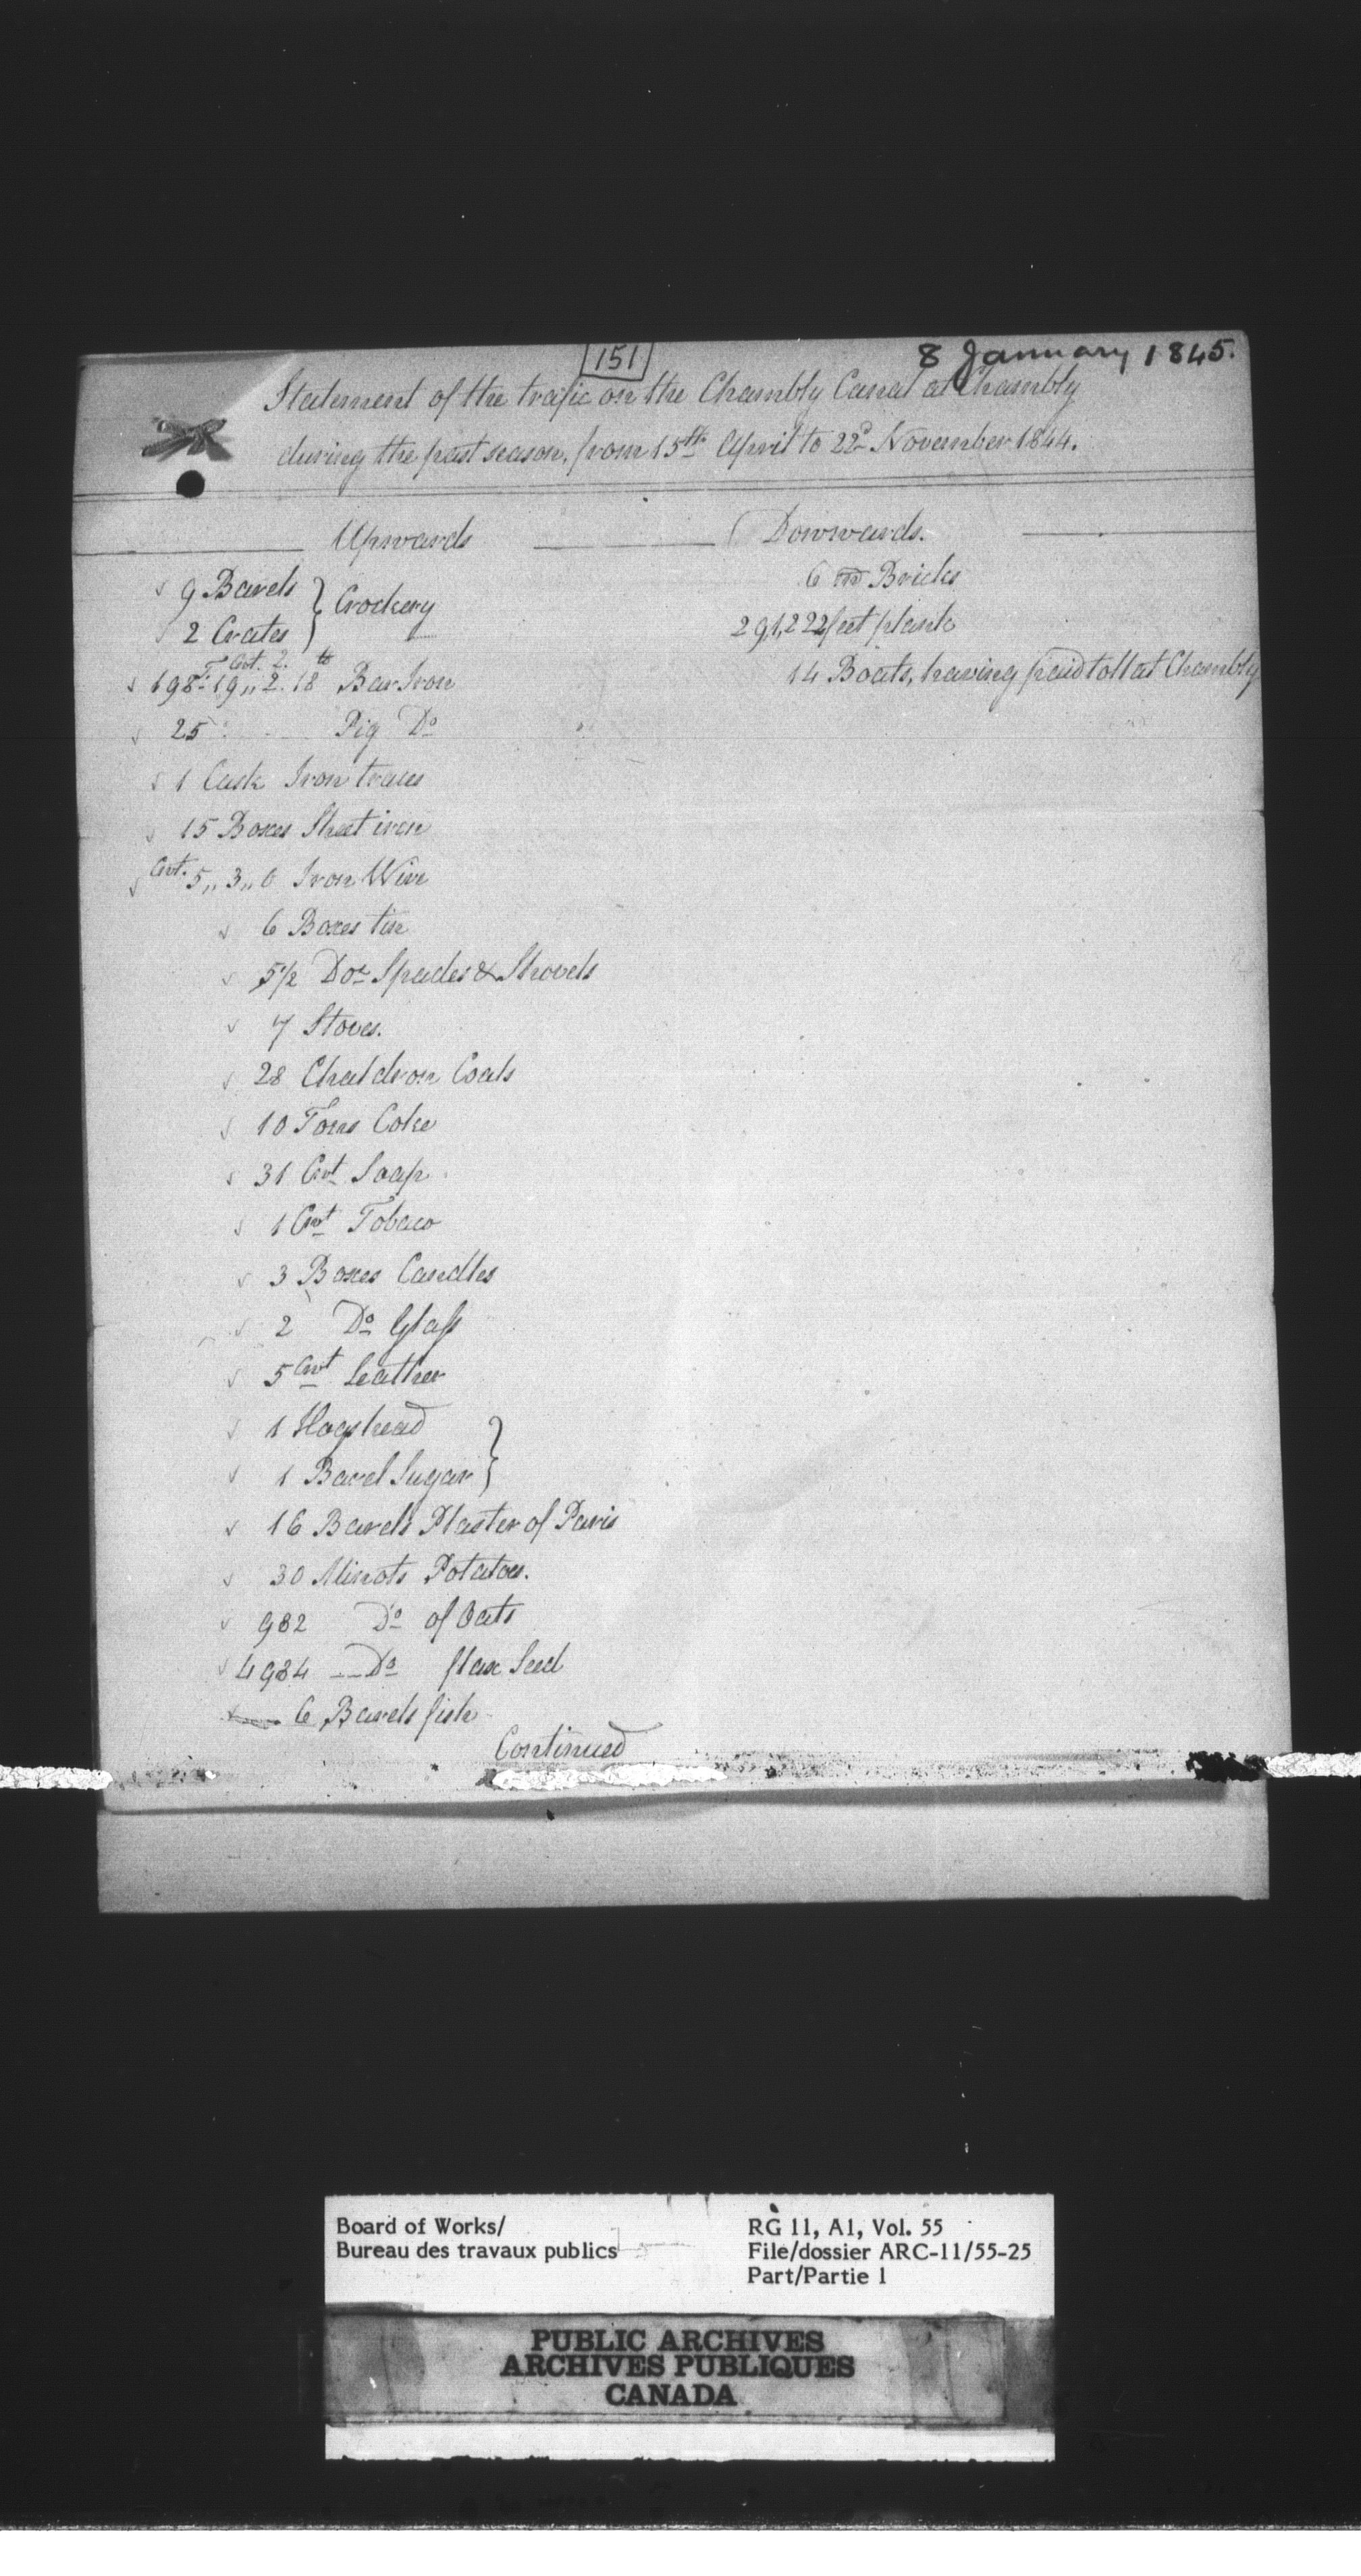 151
8 January 1845.
Statement of the trafic on the Chambly Canal at Chambly
during the past season, from 15th April to 22d November 1844.
Upwards
Downwards.
9 Barels } Crockery
2 Crates }
T Cwt. 2. lb
198 " 19 " 2. 18 Bar Iron
25 Pig Do
1 Cask Iron traces
15 Boxes Sheet iron
Cwt. 5 " 3 " 0 Iron Wire
6 Boxes tin
5 1/2 Doz Spades & Shovels
7 Stoves.
28 Chaldron Coals
10 Tons Coke
31 Cwt Soap
1 Cwt Tobaco
3 Boxes Candles
2 Do Glass
5 Cwt Leather
1 Hogshead }
1 Barel Sugar }
16 Barels Plaster of Paris
30 Minots Potatoes.
982 Do of Oats
4984 Do flax Seed
6 Barels fish
Continued
6 m Bricks
291,222 feet plank
14 Boats, having paid toll at Chambly
Board of Works/
Bureau des travaux publics
RG 11, A1, Vol. 55
File/dossier ARC-11/55-25
Part/Partie 1
PUBLIC ARCHIVES
ARCHIVES PUBLIQUES
CANADA